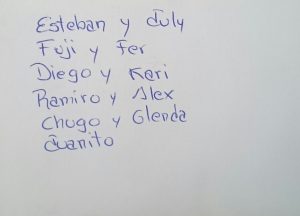 Esteban y July
Fuji y Fer
Diego y Kari
Ramiro y Alex
Chugo y Glenda
Juanito